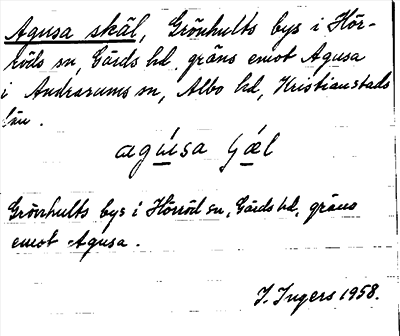 Agusa skäl, Grönhults bys i Hör-
röds sn, Gärds hd, gräns emot Agusa
i Andrarums sn, Albo hd, Kristianstads
län.
agúsa
Grönhults bys i Hörröd sn, Gärds hd, gräns
emot Agusa.
I. Ingers 1958.